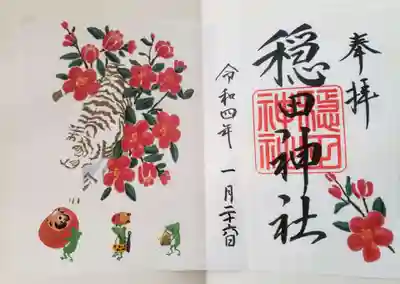 奉拝
穏田神社
穏田神社
令和四年 一月二十六日